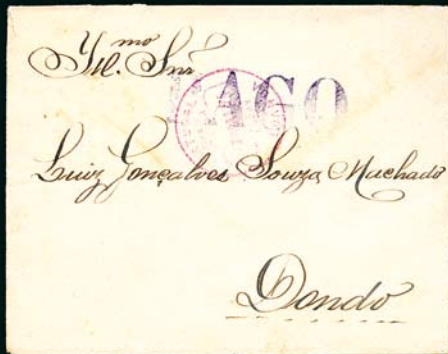 Ill.mo Snr
PAGO
Luiz Gonçalves Souza Machado
Dondo